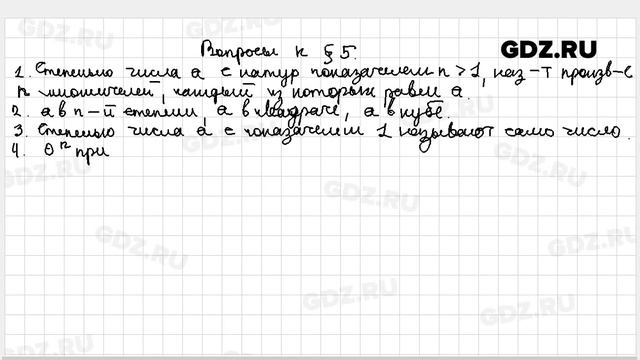 Вопросы к § 5.
GDZ.RU
1. Степенью числа a с натур показателем n > 1, наз-т произв-е
n множителей, каждый из которых равен a.
2. a в n-й степени, a в квадрате, a в кубе.
3. Степенью числа a с показателем 1 называют само число.
4. 0ⁿ при
GDZ.RU
GDZ.RU
GDZ.RU
GDZ.RU
GDZ.RU
GDZ.RU
GDZ.RU
GDZ.RU